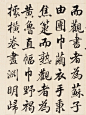 而觀書者為蘇子
由團巾繭衣手秉
蕉箑而熟視者為
黃魯直幅巾野褐
據橫卷畫淵明歸